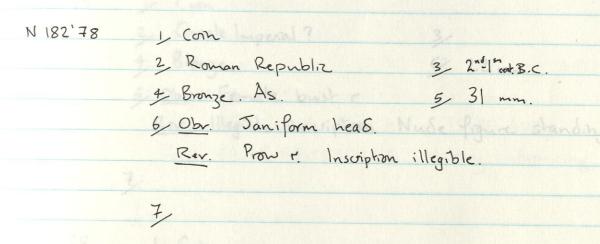 N 182'78 1/ Coin
2/ Roman Republic 3/ 2nd-1st cent. B.C.
4/ Bronze. As. 5/ 31 mm.
6/ Obv. Janiform head.
Rev. Prow r. Inscription illegible.
7/